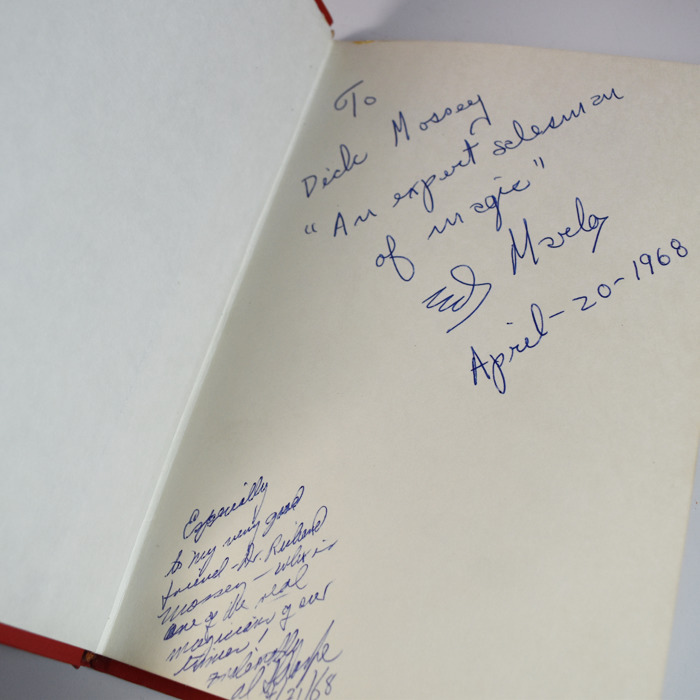 To
Dick Mossey
"An expert salesman
of magic"
Ed Marlo
April-20-1968
Especially
to my very good
friend-Dr. Richard
Mossey - who is
one of the real
magicians of our
times!
Al Sharpe
/21/68